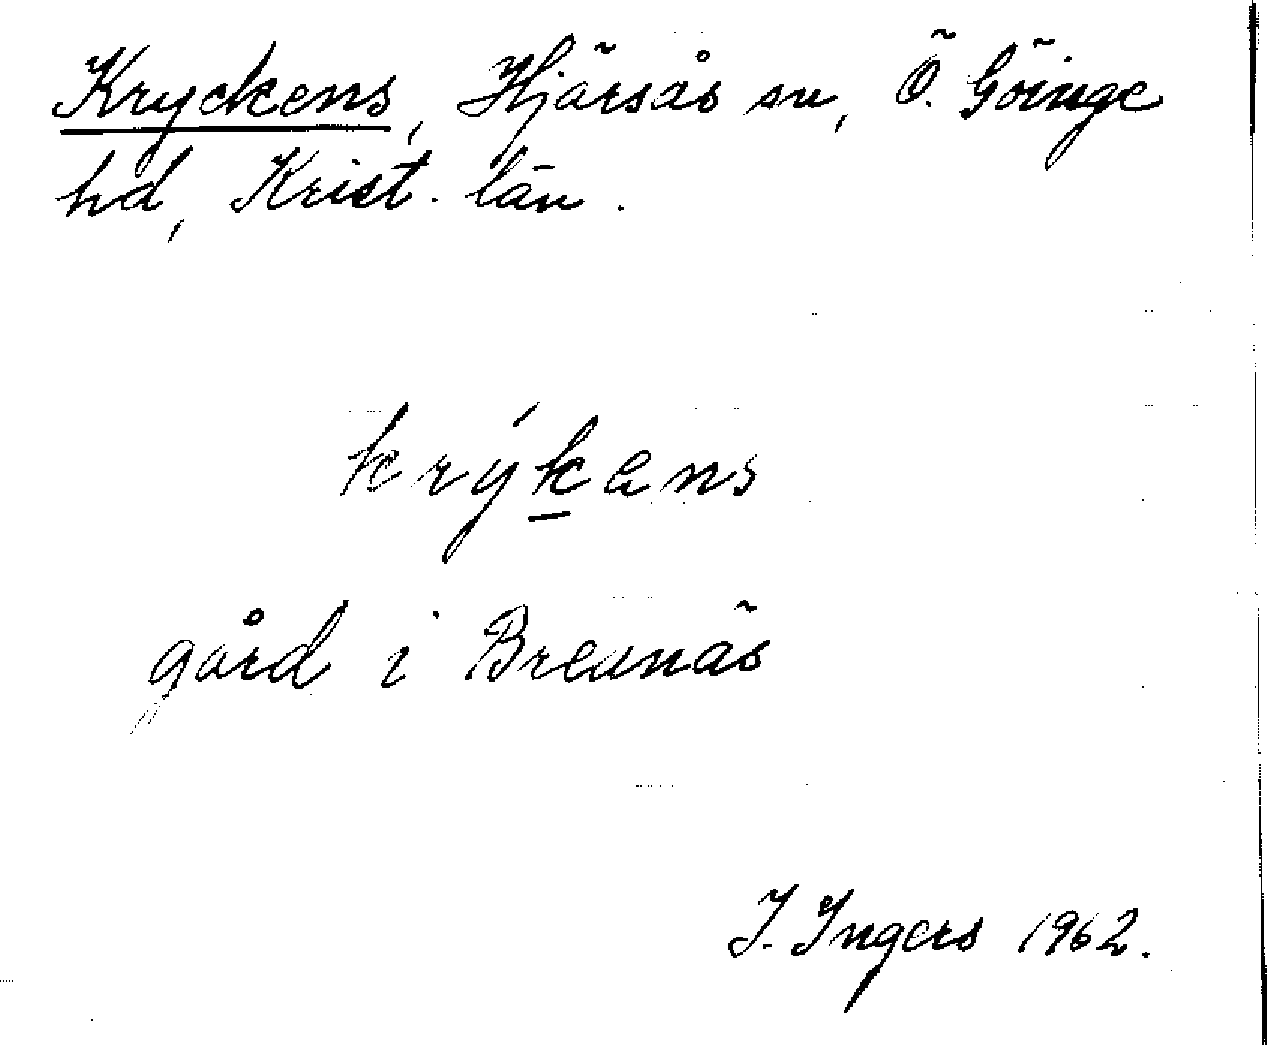 Kryckens, Hjärsås sn, Ö. Göinge
hd, Krist. län.
krýkans
gård i Breanäs
I. Ingers 1962.